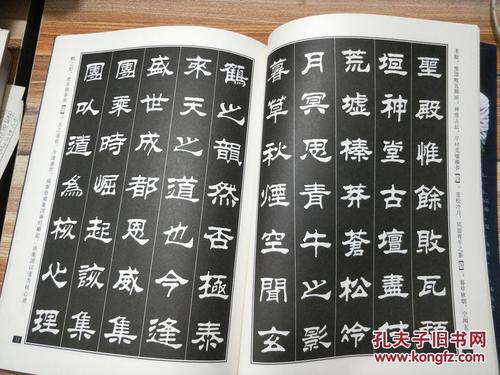 聖殿惟餘敗瓦頹
垣神堂古壇盡付
荒墟榛莽蒼松冷
月冥思青牛之影
暮草秋煙空聞玄
鶴之韻然否極泰
來天之道也今逢
盛世成都恩威集
團乘時崛起該集
團以道為核心理
孔夫子旧书网
www.kongfz.com